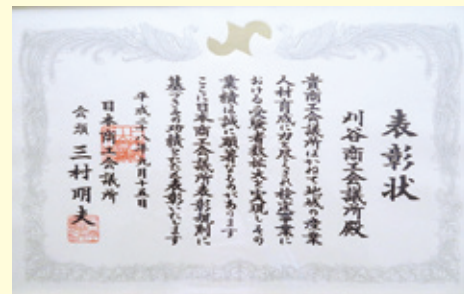 表彰状
刈谷商工会議所殿
貴商工会議所はかねて地域の産業
人材育成に力を尽くされ検定事業に
おける受験者数拡大を実現しその
業績は誠に顕著なものであります
ここに日本商工会議所表彰規則に
基づきその功績をたたえ表彰いたします
平成二十八年九月十五日
日本商工会議所
会頭 三村明夫